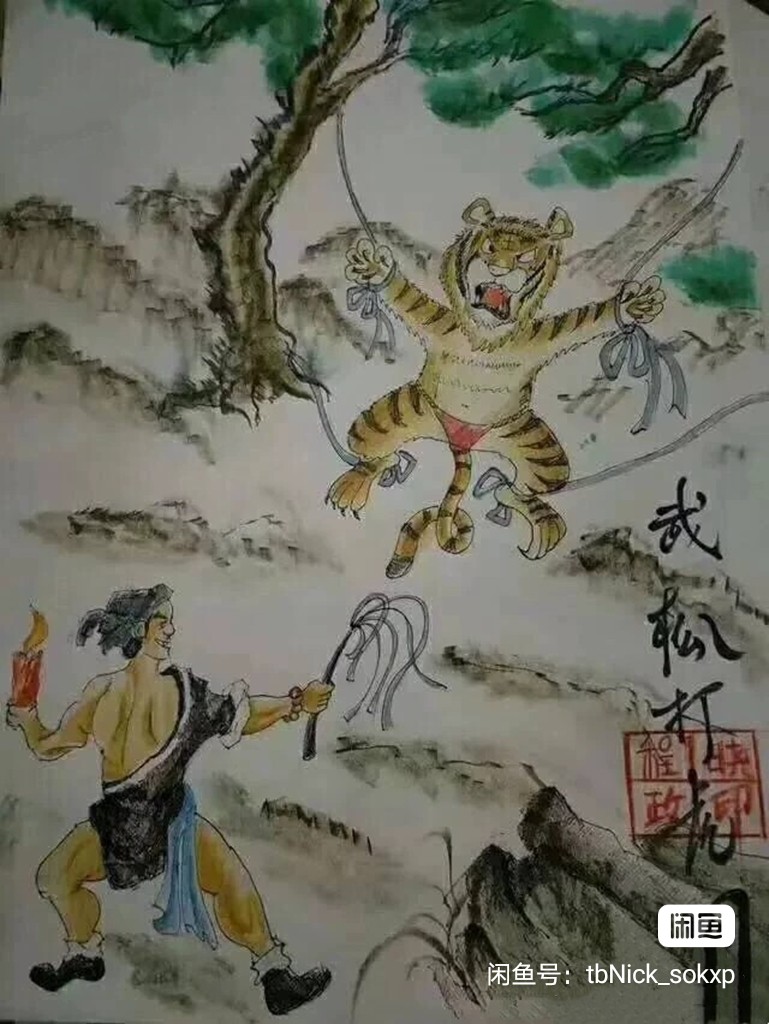 武松打虎
程晓
政印
闲鱼
闲鱼号：tbNick_sokxp